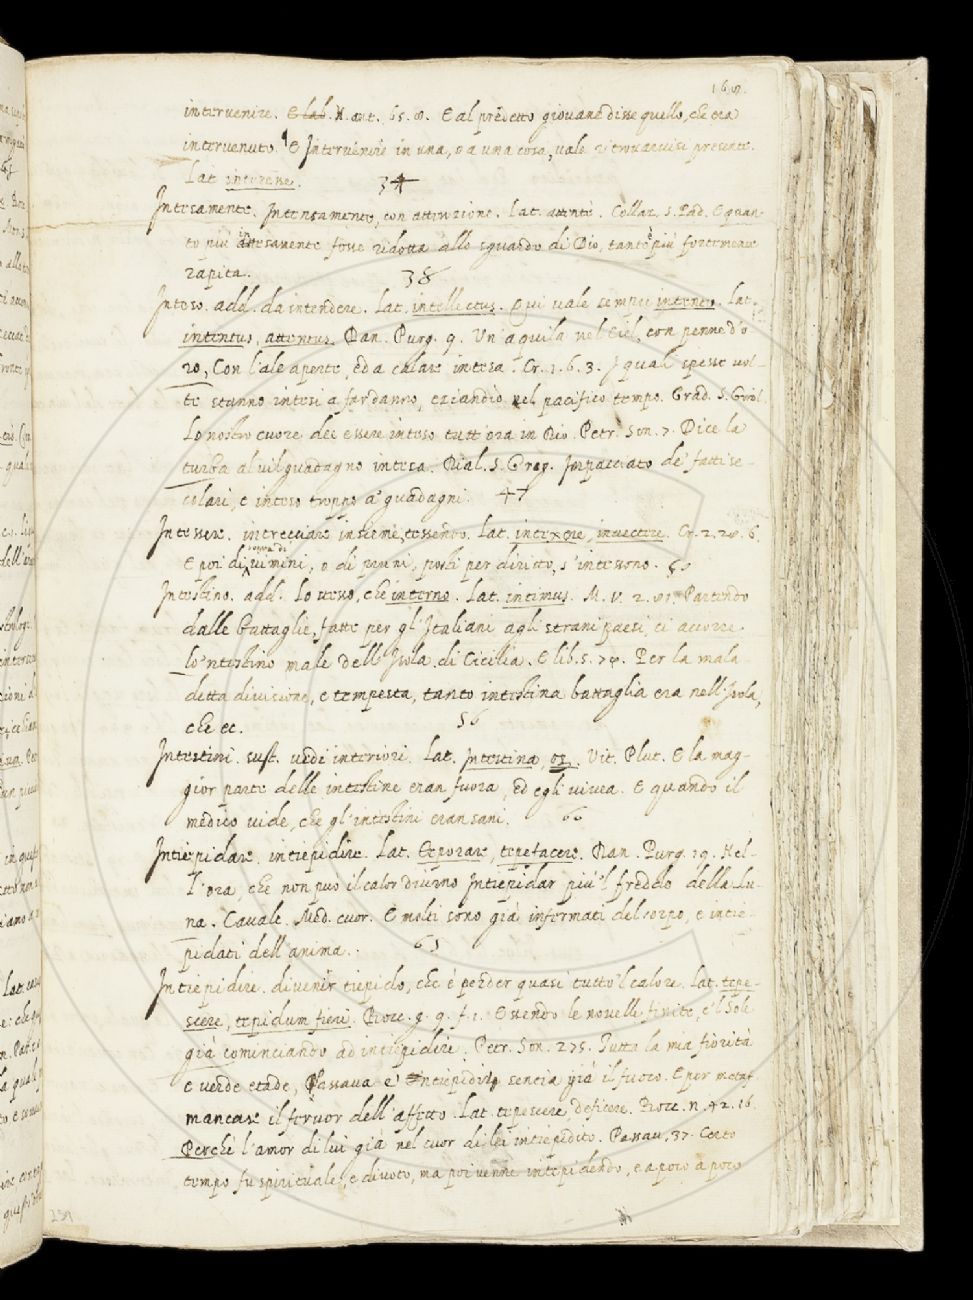 intervenire. E lab. N. ant. 65. 8. E al predetto giovane disse quello, che era
intervenuto. E Intervenire in una, o a una cosa, vale ritrouaruisi presente.
Lat. interesse. 34
Intesamente. Intensamente, con attenzione. Lat. attentè. Collaz. S. Pad. E quan-
to più intesamente fosse ridotta allo sguardo di Dio, tanto è più fortemente
rapita. 38
Inteso. add. da intendere. Lat. intellectus. Qui vale sempre intento. Lat.
intentus, attentus. Dan. Purg. 9. Un' aquila nel Ciel, con penne d'o
ro, Con l'ale aperte, ed a calare intesa. Cr. 1. 6. 3. I quali spesse uol-
te stanno intesi a far danno, eziandio nel pacifico tempo. Grad. S. Girol.
Lo nostro cuore dee essere inteso tutt'ora in Dio. Petr. Son. 7. Dice la
turba al vil guadagno intesa. Dial. S. Greg. Impacciato de' fatti se-
colari, e inteso troppo a' guadagni. 47
Intessere. intrecciare insieme, tessendo. Lat. intexere, invectere. Cr. 2. 28. 6.
sopra di
E poi di vimini, o di pruni, posti per diritto, s'intessono. 50
Intestino. add. Lo stesso, che interno. Lat. intimus. M. V. 2. 81. Partendo
dalle battaglie, fatte per gl'Italiani agli strani paesi, ci accorre
lo 'ntestino male dell'Isola di Cicilia. E lib. 5. 78. Per la mala-
detta divisione, e tempesta, tanto intestina battaglia era nell'Isola,
che ec. 56
Intestini. sust. vedi interiori. Lat. Intestina, Vit. Plut. E la mag-
gior parte delle intestine eran fuora, ed egli vivea. E quando il
medico vide, che gl'intestini eran sani. 60
Intiepidare. intiepidire. Lat. teporare, tepefacere. Dan. Purg. 19. Nel-
l'ora, che non può il calor diurno Intiepidar più 'l freddo della Lu-
na. Cavalc. Med. cuor. E molti sono già infermati del corpo, e intie-
pidati dell'anima. 63
Intiepidire. divenir tiepido, che è perder quasi tutto 'l calore. Lat. tepe-
scere, tepidum fieri. Bocc. g. 9. f. 1. Essendo le novelle finite, e 'l Sole
già cominciando ad intiepidire. Petr. Son. 275. Tutta la mia fiorita
e verde etade, Passava e 'ntiepidir sentia già il fuoco. E per metaf.
mancare il fervor dell'affetto. Lat. tepescere, deficere. Bocc. n. 42. 16.
Perchè l'amor di lui già nel cuor di lei intiepidito. Passav. 37. Certo
tempo fu spirituale, e divoto, ma poi venne intiepidendo, e a poco a poco